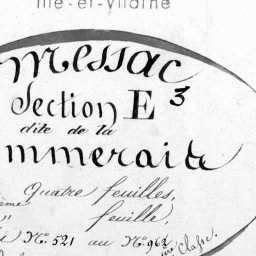 Ille-et-Vilaine
Messac
Section E 3
dite de la
mmeraite
Quatre feuilles,
" feuille,
Nº. 521 au Nº. 962
Classe.